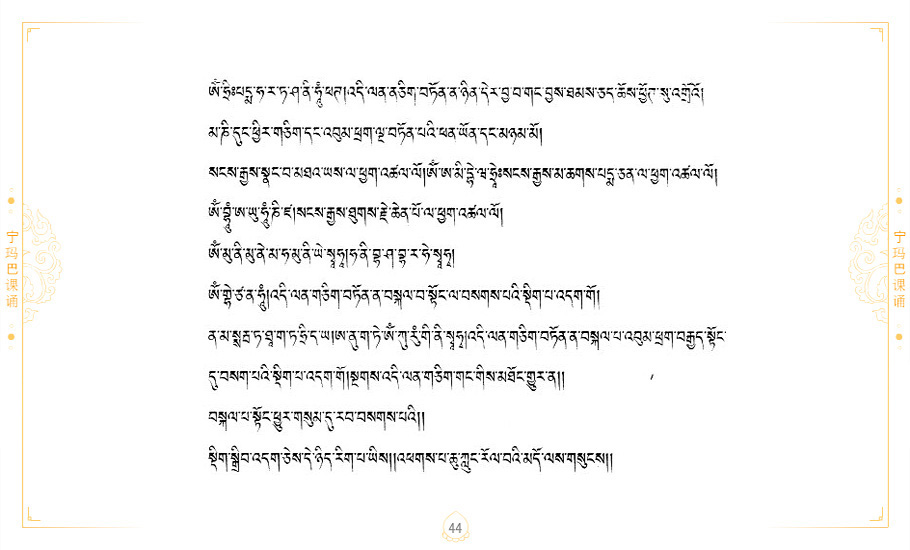 ཨོཾ་ཧྲཱིཿཔདྨ་ཧ་ར་ཏ་ཤ་ནི་ཧཱུྃ་ཕཊ།འདི་ལན་ནཅིག་བཏོན་ན་ཉིན་དེར་བྱ་བ་གང་བྱས་ཐམས་ཅད་ཆོས་ཕྱོཊ་སུ་འགྲོའོ།
མ་ཎི་དུང་ཕྱིར་གཅིག་དང་འབུམ་ཕྲག་ལྔ་བཏོན་པའི་ཕན་ཡོན་དང་མཉམ་མོ།
སངས་རྒྱས་སྣང་བ་མཐའ་ཡས་ལ་ཕྱག་འཚལ་ལོ།ཨོཾ་ཨ་མི་དྷེ་ཝ་ཧྲཱིཿསངས་རྒྱས་མ་ཆགས་པདྨ་ཅན་ལ་ཕྱག་འཚལ་ལོ།
ཨོཾ་བྷྲཱུྃ་ཨ་ཡུ་ཧཱུྃ་ཎི་ཛ།སངས་རྒྱས་ཐུགས་རྗེ་ཆེན་པོ་ལ་ཕྱག་འཚལ་ལོ།
ཨོཾ་མུ་ནི་མུ་ནེ་མ་ཧ་མུ་ནི་ཡེ་སྭཱཧཱ།ཧ་ནི་བྷ་ཤ་བྷ་ར་ཧེ་སྭཱཧཱ།
འདི་ལན་གཅིག་བཏོན་ན་བསྐལ་བ་སྟོང་ལ་བསགས་པའི་སྡིག་པ་འདག་གོ།
འདི་ལན་གཅིག་བཏོན་ན་བསྐལ་པ་འབུམ་ཕྲག་བརྒྱད་སྟོང་
དུ་བསག་པའི་སྡིག་པ་འདག་གོ།སྔགས་འདི་ལན་གཅིག་གང་གིས་མཐོང་གྱུར་ན།།
བསྐལ་པ་སྟོང་ཕྱུར་གསུམ་དུ་རབ་བསགས་པའི།།
སྡིག་སྒྲིབ་འདག་ཅེས་དེ་ཉིད་རིག་པ་ཡིས།།འཕགས་པ་ཆུ་ཀླུང་རོལ་བའི་མདོ་ལས་གསུངས།།
宁玛巴课诵
宁玛巴课诵
44